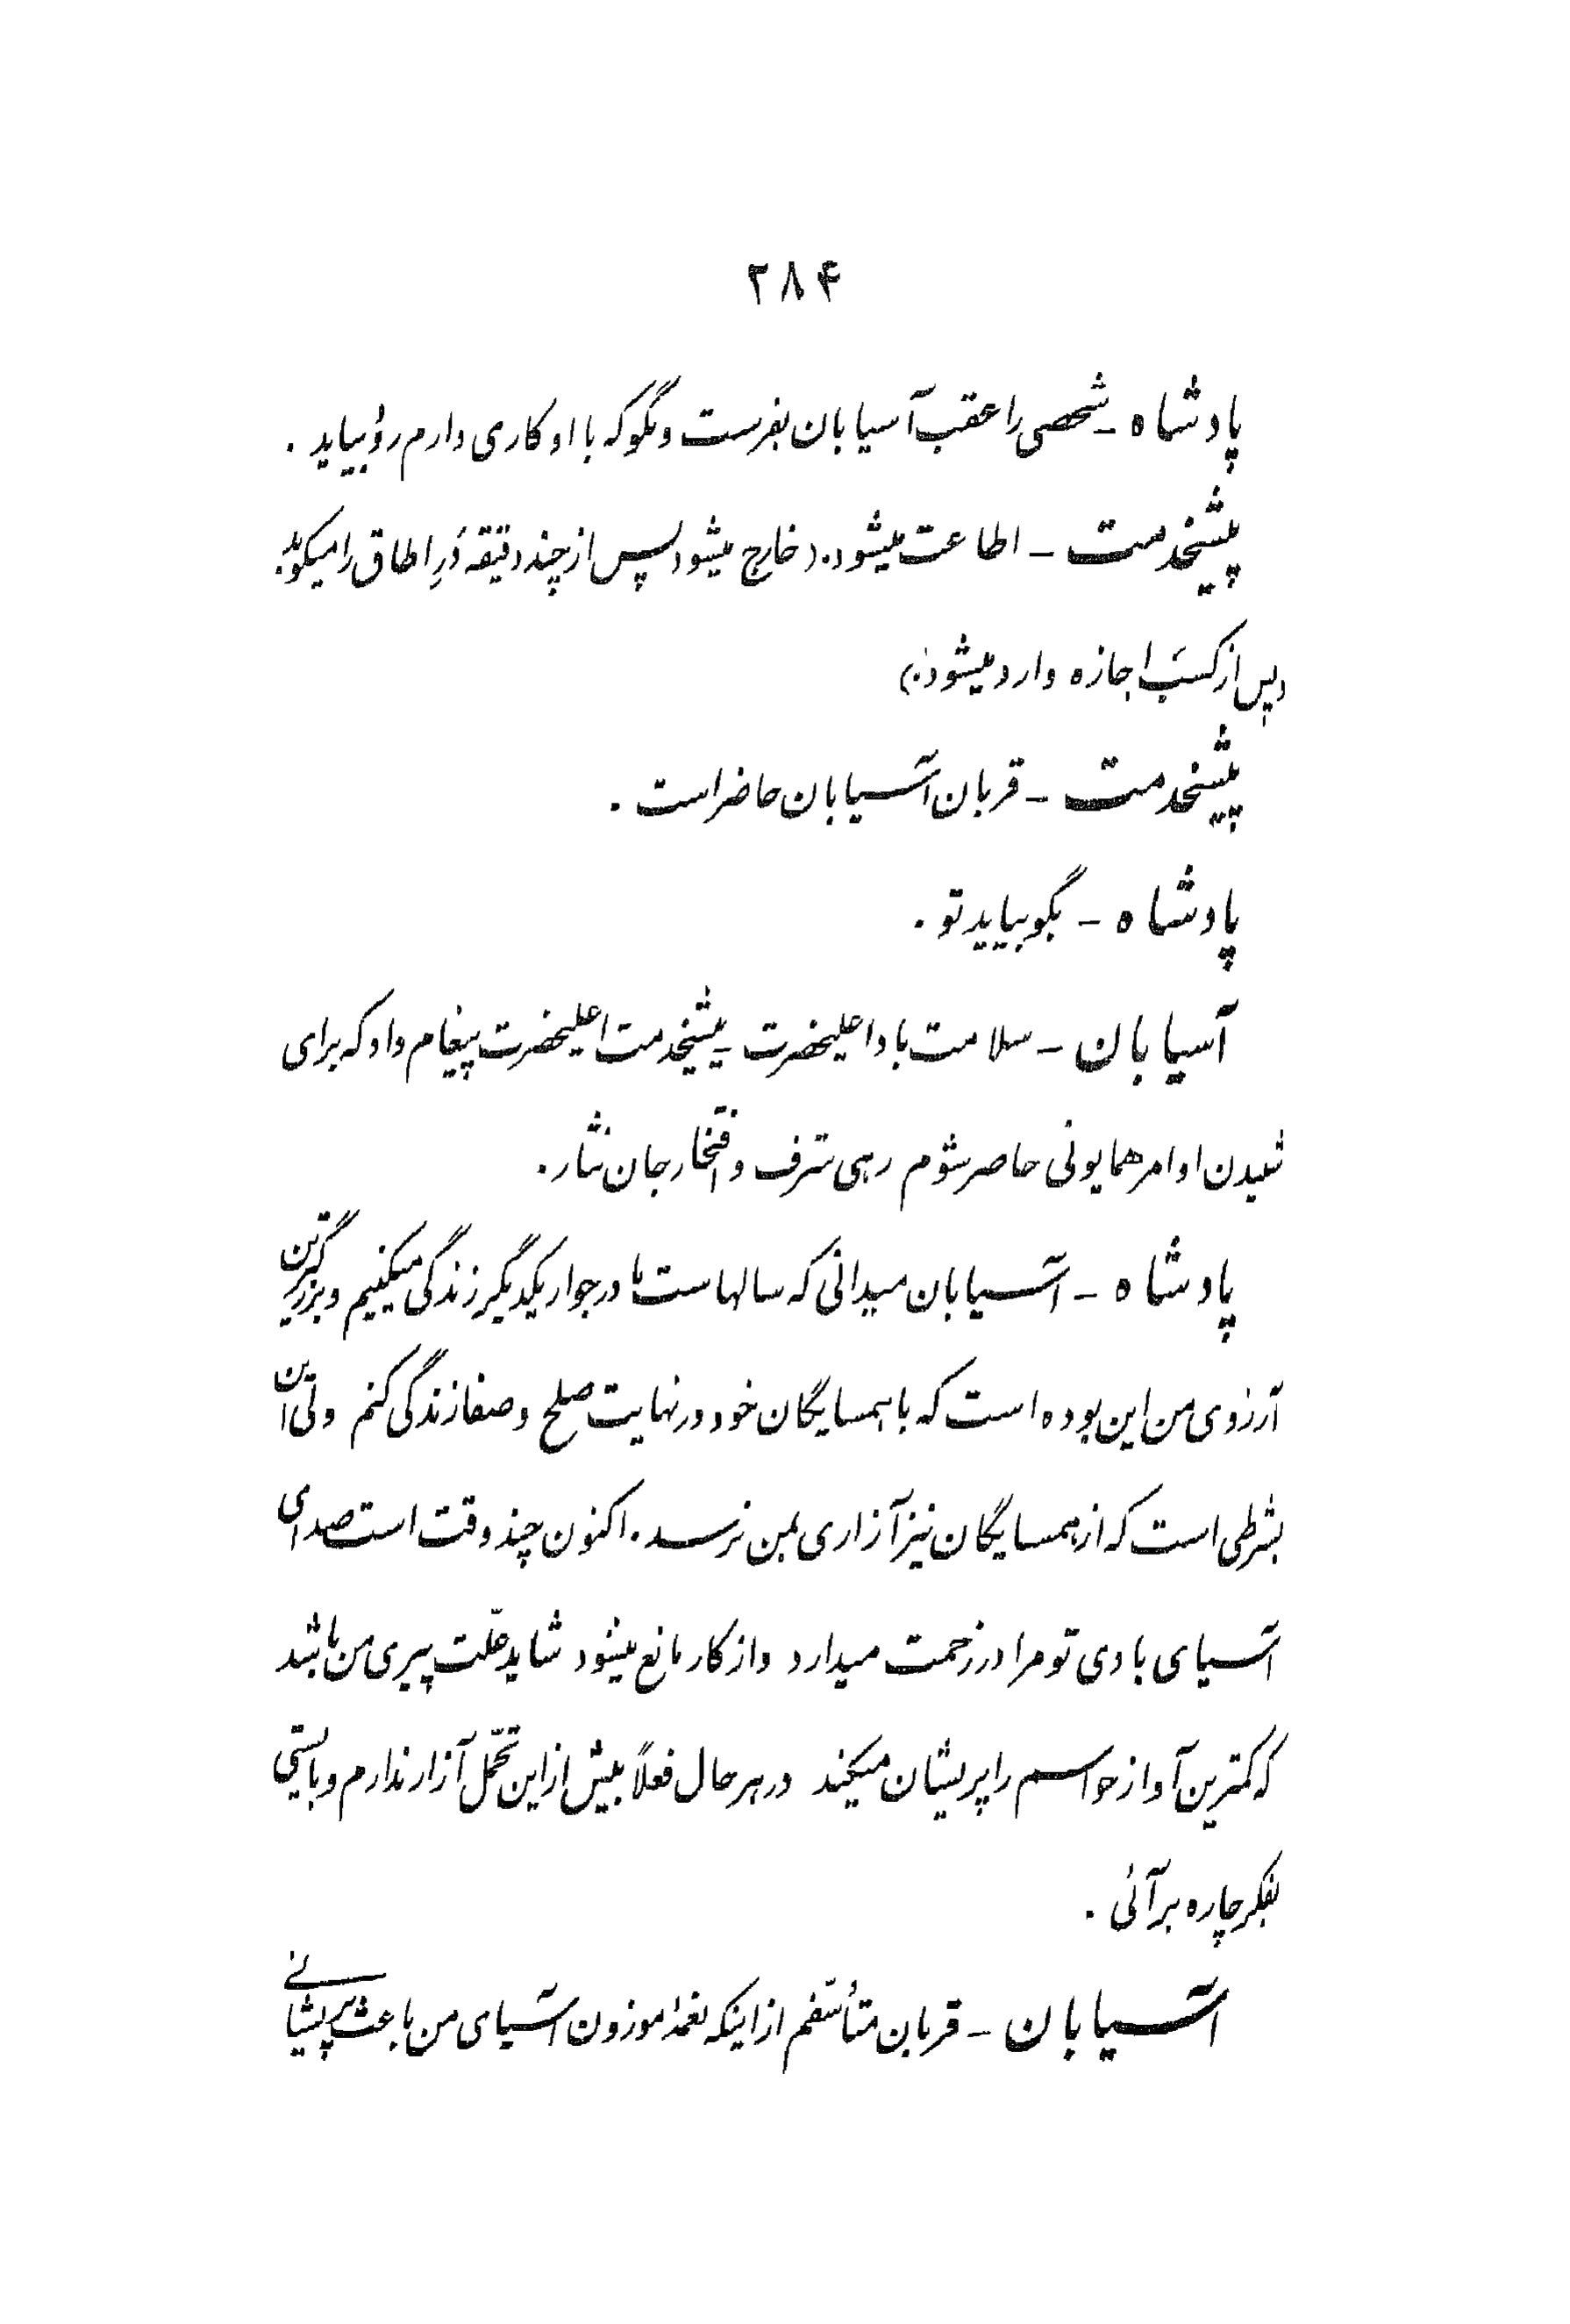 ۲۸۴
پادشاه - شخصی را عقب آسیابان بفرست و بگو که با او کاری دارم زود بیاید .
پیشخدمت - اطاعت میشود. (خارج میشود پس از چند دقیقه دَرِ اطاق را میکوبد
و پس از کسَب اجازه وارد میشود.)
پیشخدمت - قربان آسیابان حاضر است .
پادشاه - بگو بیاید تو .
آسیابان - سلامت باد اعلیحضرت - پیشخدمت اعلیحضرت پیغام داد که برای
شنیدن اوامر همایونی حاضر شوم زهی شرف و افتخار جان نثار .
پادشاه - آسیابان میدانی که سالهاست ما در جوار یکدیگر زندگی میکنیم و بزرگترین
آرزوی من این بوده است که با همسایگان خود در نهایت صلح و صفا زندگی کنم ولی این
بشرطی است که از همسایگان نیز آزاری بمن نرسد . اکنون چند وقت است صدای
آسیای بادی تو مرا در زحمت میدارد و از کار مانع میشود شاید علّت پیری من باشد
که کمترین آواز حواسم را پریشان میکند در هر حال فعلاً بیش از این تحمّل آزار ندارم و بایستی
بفکر چاره برآئی .
آسیابان - قربان متأسّفم از اینکه نغمهٔ موزون آسیای من باعث پریشانی